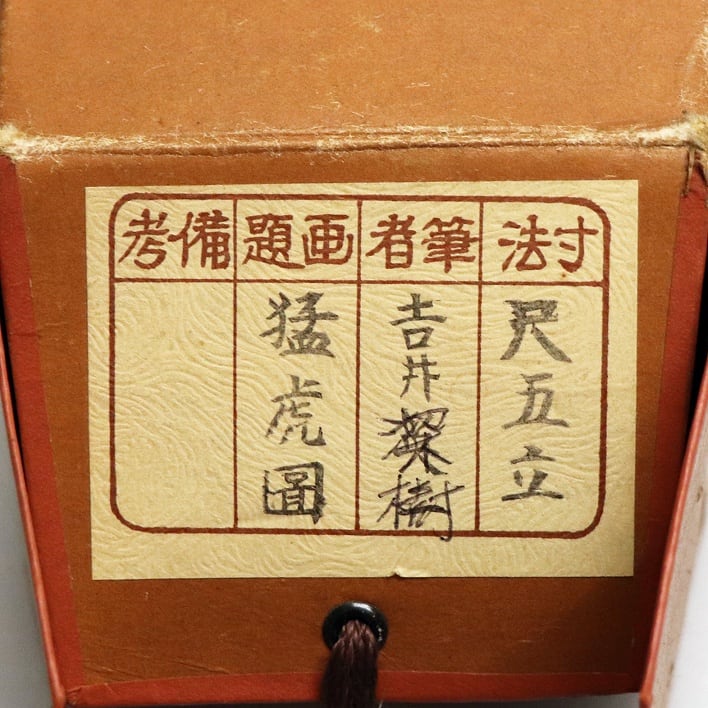 寸法
尺五立
筆者
吉井
樹
画題
猛虎圖
備考